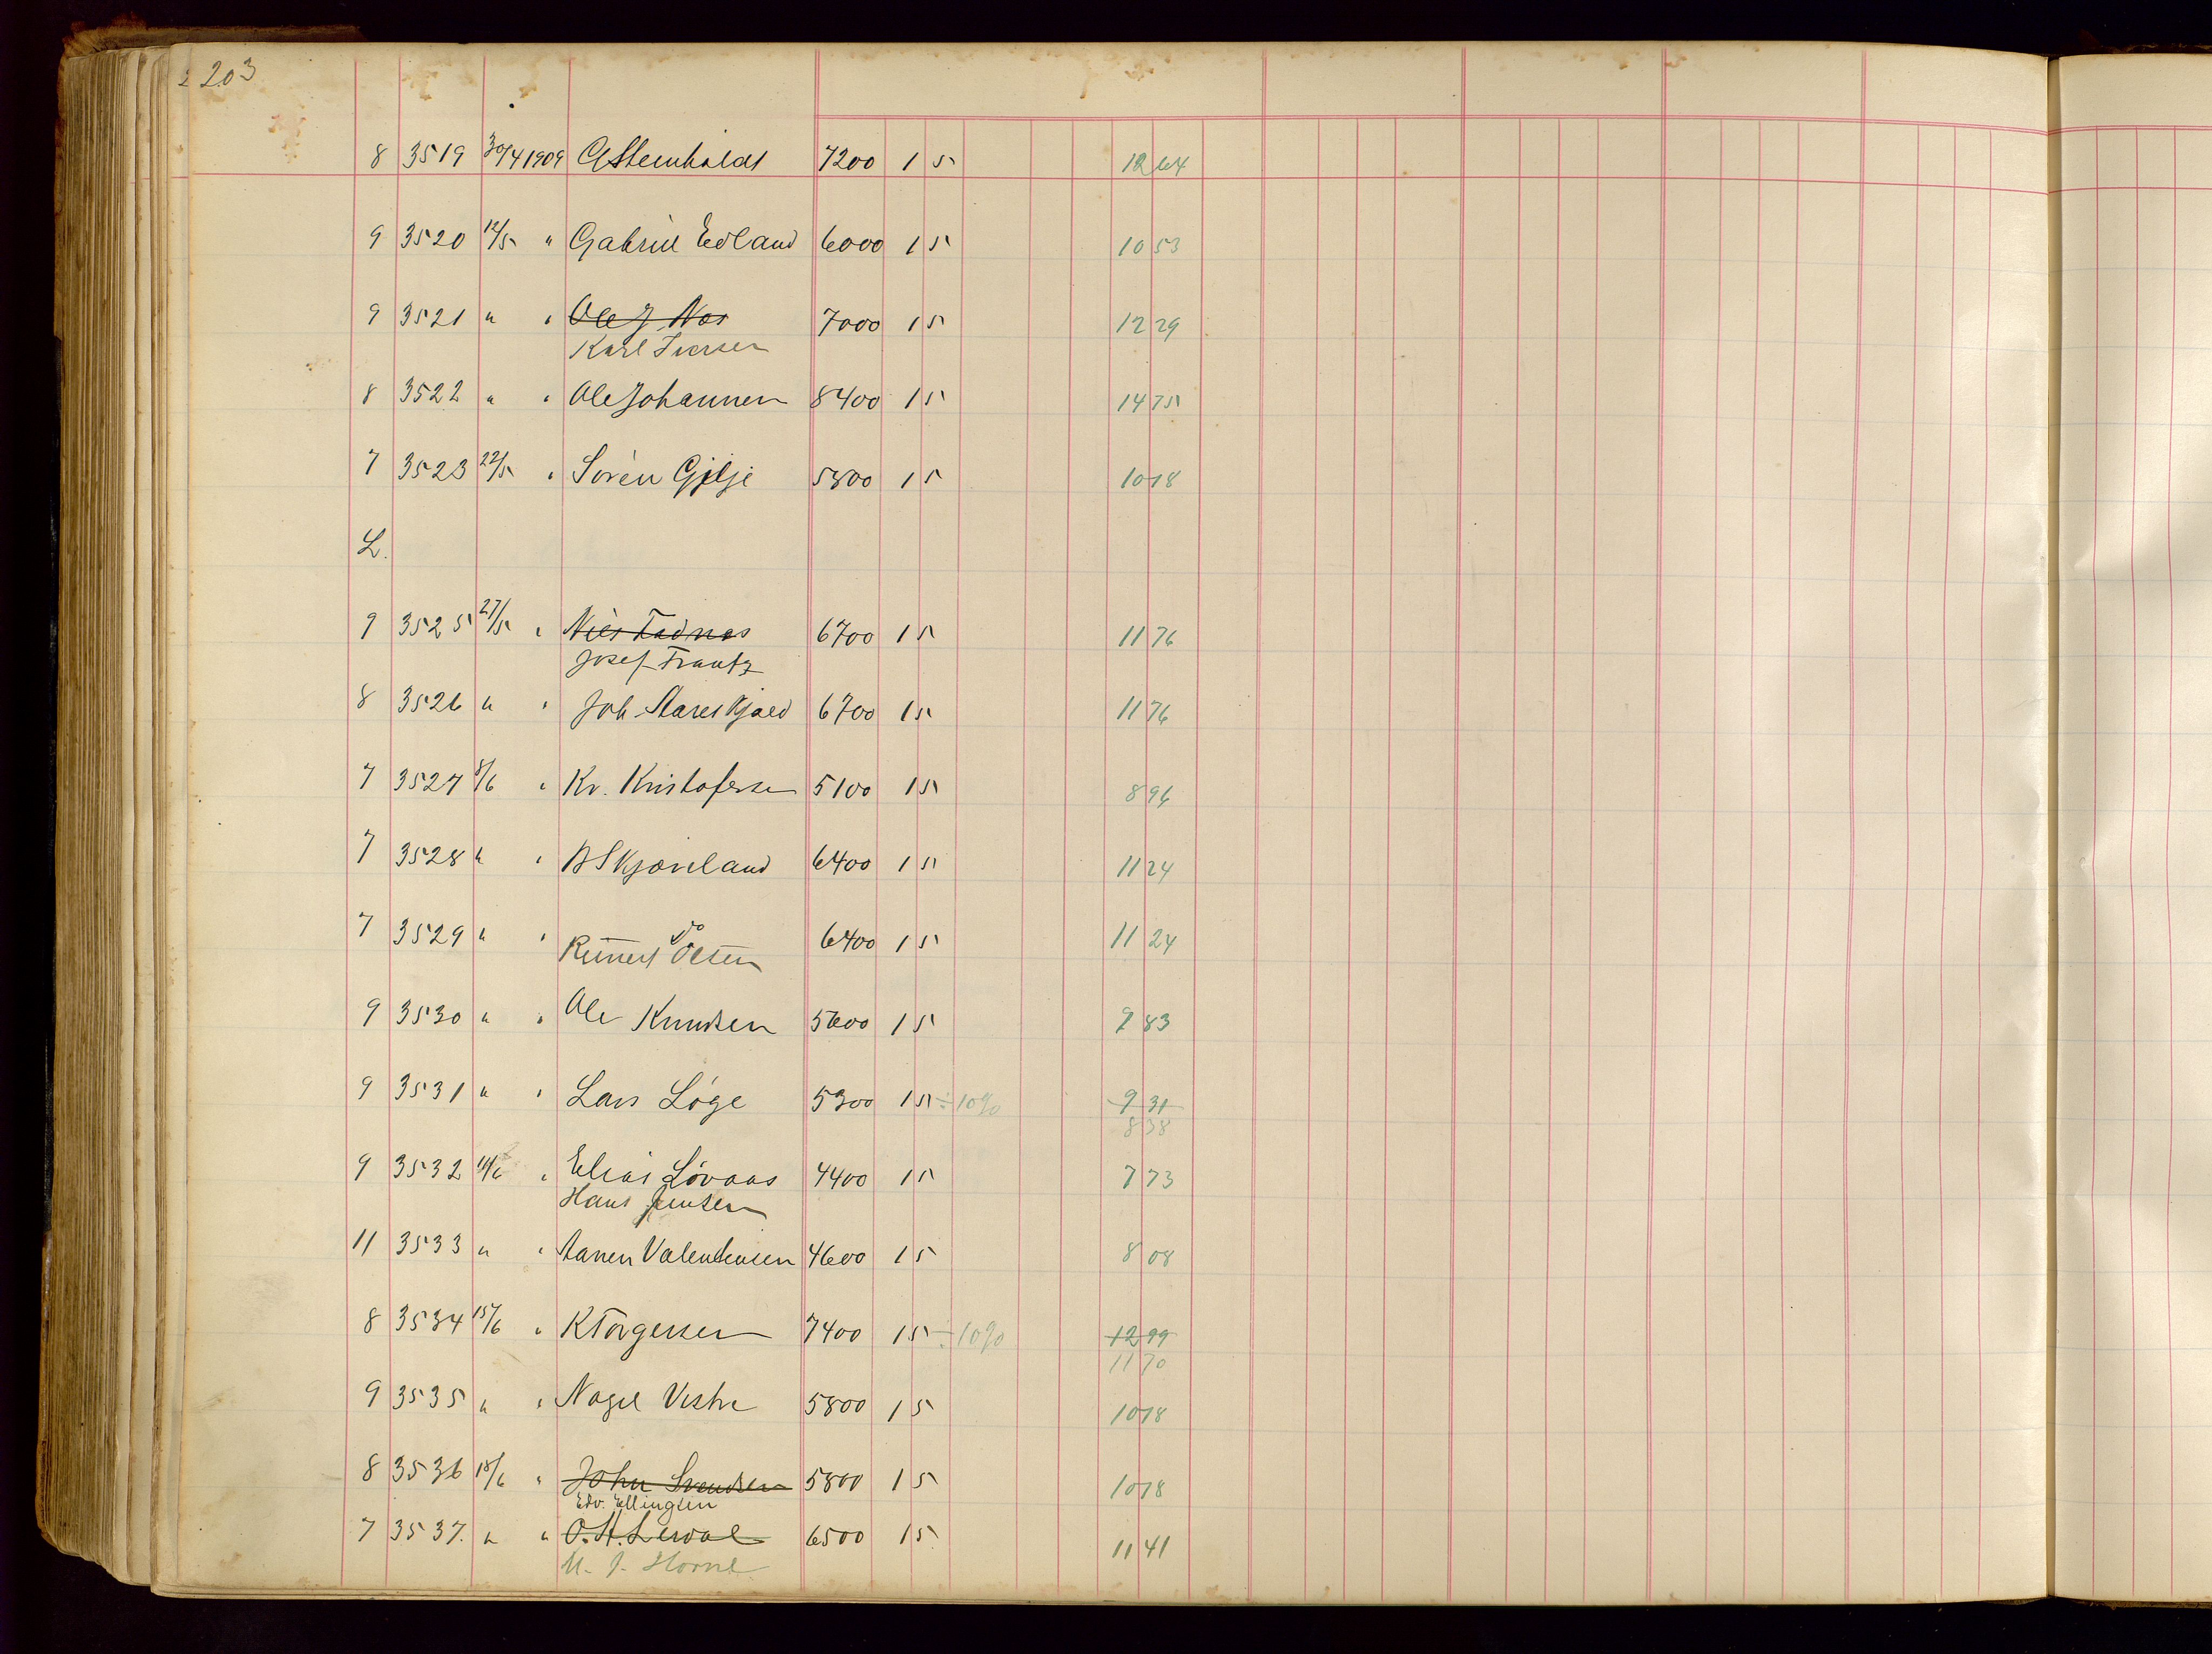 203
8 3519 30/4 1909 7200 1 5 12 64
9 3520 12/5 " Gabriel Edland 6000 1 5 10 53
9 3521 " " Ole J. Nos 7000 1 5 12 29
Karl Iversen
8 3522 " " Ole Johannesen 8400 1 5 14 75
7 3523 22/5 " Sören Gjilje 5800 1 5 10 18
L.
9 3525 27/5 " Nils Tadnes 6700 1 5 11 76
Josef Frantz
8 3526 " " Joh Aareskjold 6700 1 5 11 76
7 3527 8/6 " Kr. Kristofersen 5100 1 5 8 96
7 3528 " " B Skjæveland 6400 1 5 11 24
7 3529 " " do 6400 1 5 11 24
Reinert Olsen
9 3530 " " Ole Knudsen 5600 1 5 9 83
9 3531 " " Lars Löge 5300 1 5 ÷ 10% 9 31
8 38
9 3532 14/6 " Elias Lövaas 4400 1 5 7 73
Hans Jensen
11 3533 " " Aanen Valentensen 4600 1 5 8 08
8 3534 15/6 " K Torgersen 7400 1 5 ÷ 10% 12 99
11 70
9 3535 " " Nagel Vestre 5800 1 5 10 18
8 3536 18/6 " John Svendsen 5800 1 5 10 18
Edv. Ellingsen
7 3537. " " O. H. Lerval 6500 1 5 11 41
M. J. Horne